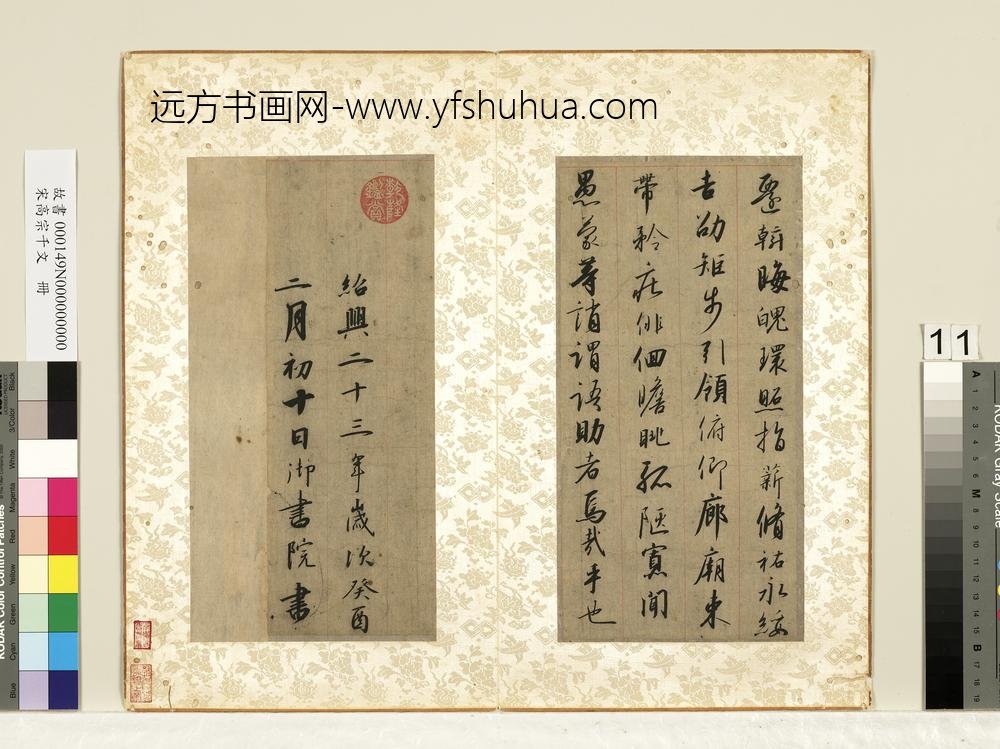 远方书画网-www.yfshuhua.com
懸斡晦魄環照指薪脩祐永綏
吉劭矩步引領俯仰廊廟束
帶矜莊俳佪瞻眺孤陋寡聞
愚蒙等誚謂語助者焉哉乎也
乾隆鑑賞
紹興二十三年歲次癸酉
二月初十日御書院書
故書 000149N000000000
宋高宗千文 冊
11
KODAK Color Control Patches
Blue Cyan Green Yellow Red Magenta White 3/Color Black
KODAK Gray Scale
A 1 2 3 4 5 6 M 8 9 10 11 12 13 14 15 B 17 18 19